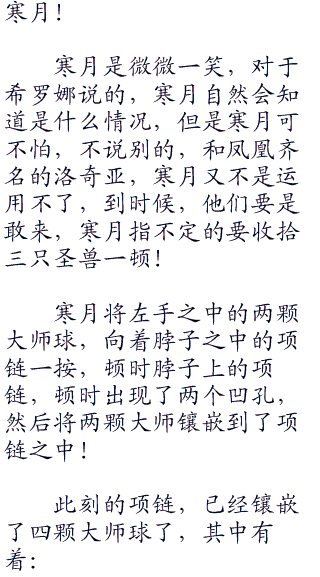 寒月！
寒月是微微一笑，对于
希罗娜说的，寒月自然会知
道是什么情况，但是寒月可
不怕，不说别的，和凤凰齐
名的洛奇亚，寒月又不是运
用不了，到时候，他们要是
敢来，寒月指不定的要收拾
三只圣兽一顿！
寒月将左手之中的两颗
大师球，向着脖子之中的项
链一按，顿时脖子上的项
链，顿时出现了两个凹孔，
然后将两颗大师镶嵌到了项
链之中！
此刻的项链，已经镶嵌
了四颗大师球了，其中有
着：